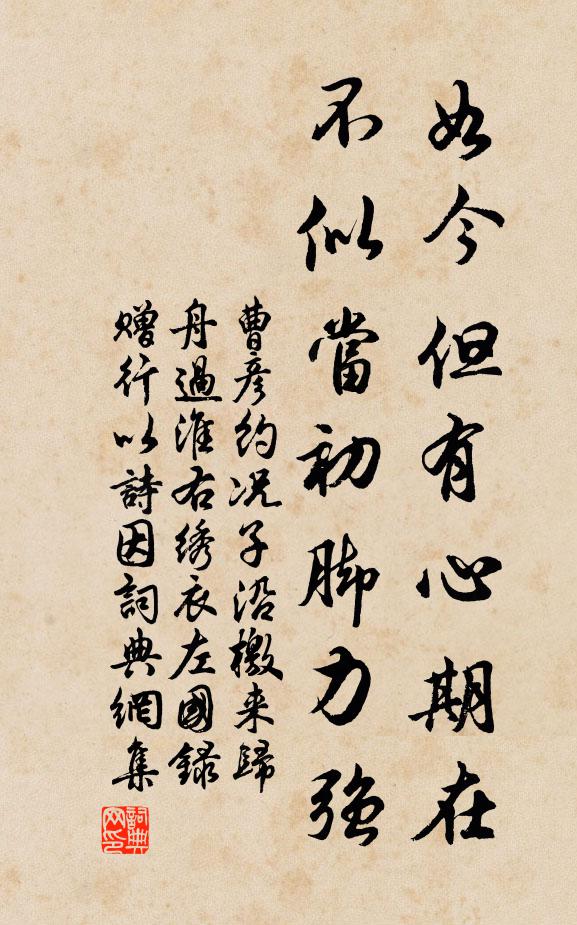 如今但有心期在
不似當初脚力強
曹彦約况子沿檄来歸
舟過淮右绣衣左國録
贈行以詩因詞典網集
詞典網印